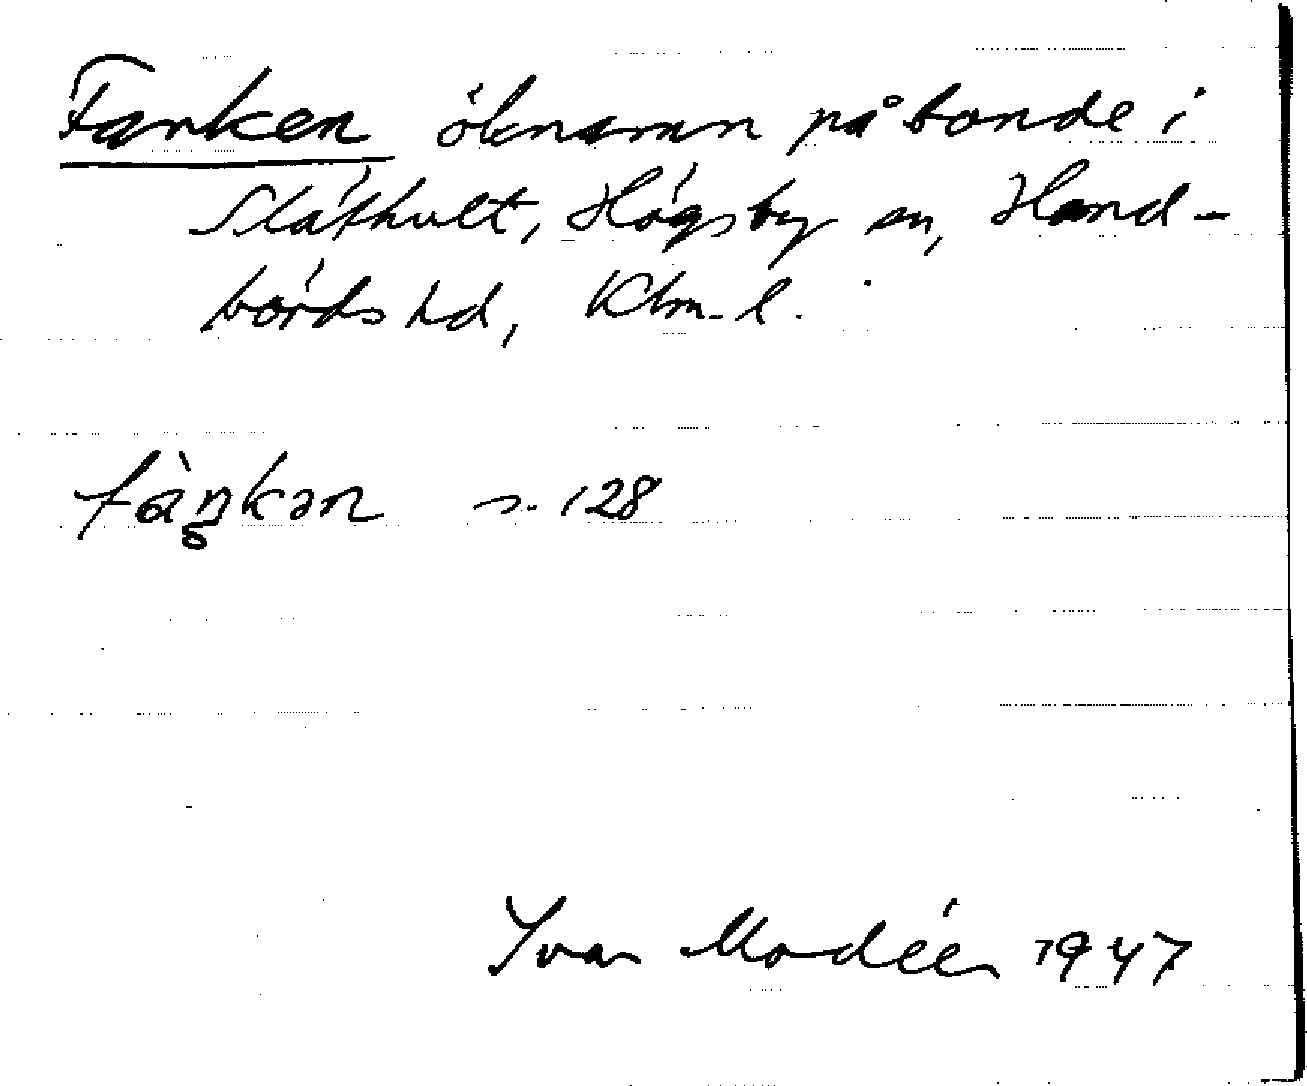 Fanken öknamn på bonde i
Slåthult, Högsby sn, Hand-
börds hd, Klm. l.
fàŋkən s. 128
Ivar Modéer 1947